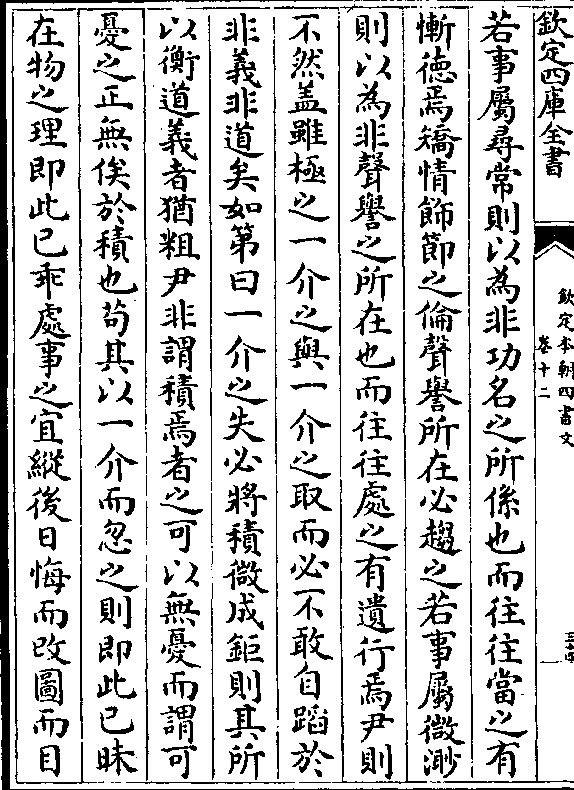 欽定四庫全書
欽定本朝四書文
卷十二
若事屬尋常則以為非功名之所係也而往往當之有
慚徳焉矯情飾節之倫聲譽所在必趨之若事屬微渺
則以為非聲譽之所在也而往往處之有遺行焉尹則
不然盖雖極之一介之與一介之取而必不敢自蹈於
非義非道矣如第曰一介之失必將積微成鉅則其所
以衡道義者猶粗尹非謂積焉者之可以無憂而謂可
憂之正無俟於積也苟其以一介而忽之則即此已昧
在物之理即此已乖處事之宜縱後日悔而改圖而目